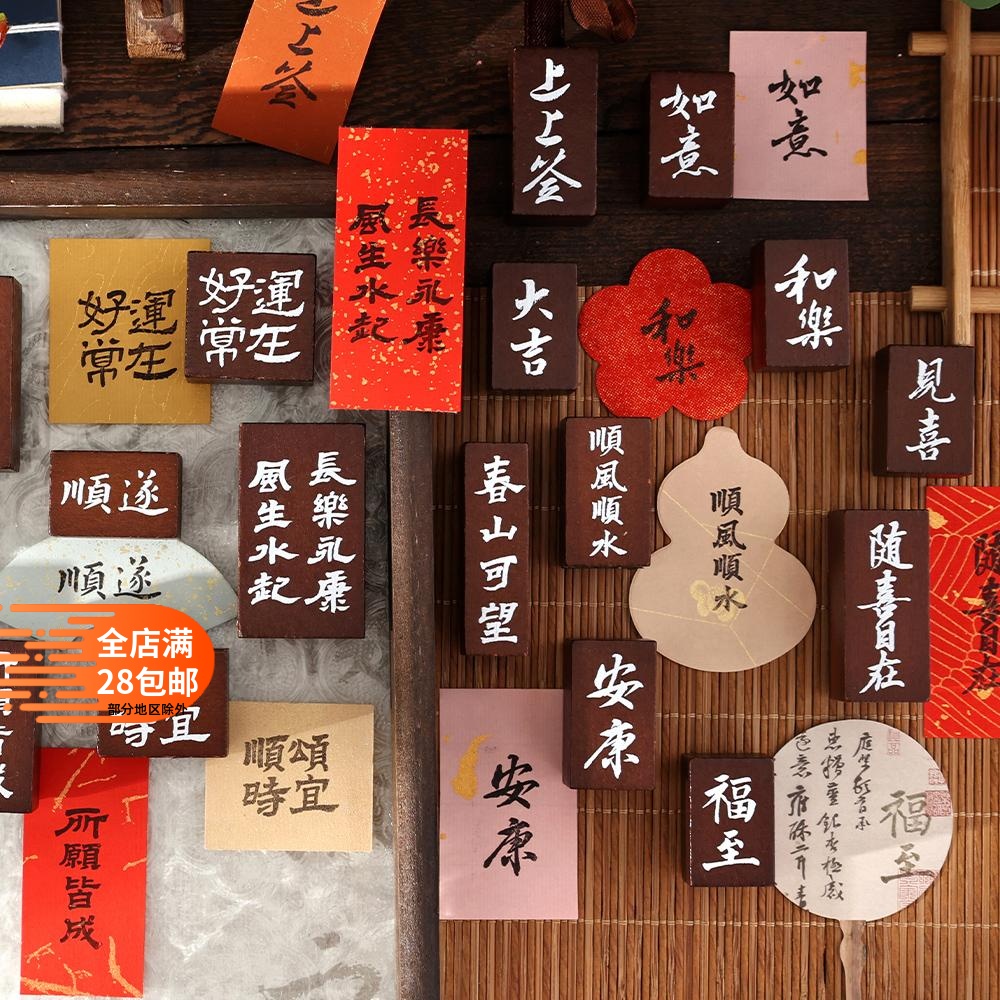 上上签
上上签
如意
如意
長樂永康
風生水起
好運
常在
好運
常在
大吉
和樂
和樂
見喜
順遂
順遂
長樂永康
風生水起
春山可望
順風順水
順風順水
随喜自在
随喜自在
全店满
28包邮
部分地区除外
時宜
安康
安康
順頌
時宜
福至
福至
所願皆成